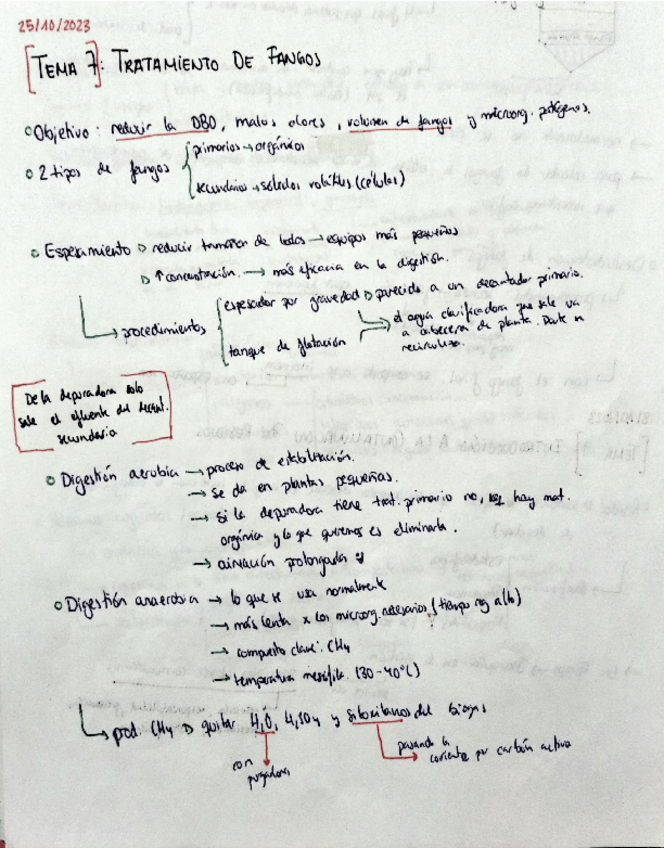 25/10/2023
[TEMA 7]: TRATAMIENTO DE FANGOS
Objetivo: reducir la DBO, malos olores, volumen de fangos y microorg. patógenos.
2 tipos de fangos
primarios → orgánicos
secundarios → sólidos volátiles (células)
Espesamiento
reducir tamaño de lodos → equipos más pequeños
↑ concentración. → más eficacia en la digestión.
procedimientos
espesador por gravedad parecido a un decantador primario.
tanque de flotación
el agua clarificadora que sale va
a cabecera de planta. Donde se
recirculiza.
De la depuradora solo
sale el efluente del decant.
secundario
Digestión aerobia → proceso de estabilización.
→ se da en plantas pequeñas.
→ si la depuradora tiene trat. primario no, hay mat.
orgánica y lo que queremos es eliminarla.
→ aireación prolongada
Digestión anaerobia → lo que se usa normalmente
→ más lenta x los microorg. (tiempo alto)
→ compuesto clave: CH4
→ temperatura mesófila (30-40°C)
prod. CH4 quitar H2O, H2SO4 y siloxanos del biogas
con
purgadores
pasando la
corriente por carbón activo